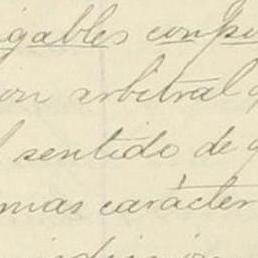 igables compo
ion arbitral
l sentido de q
mas carácter